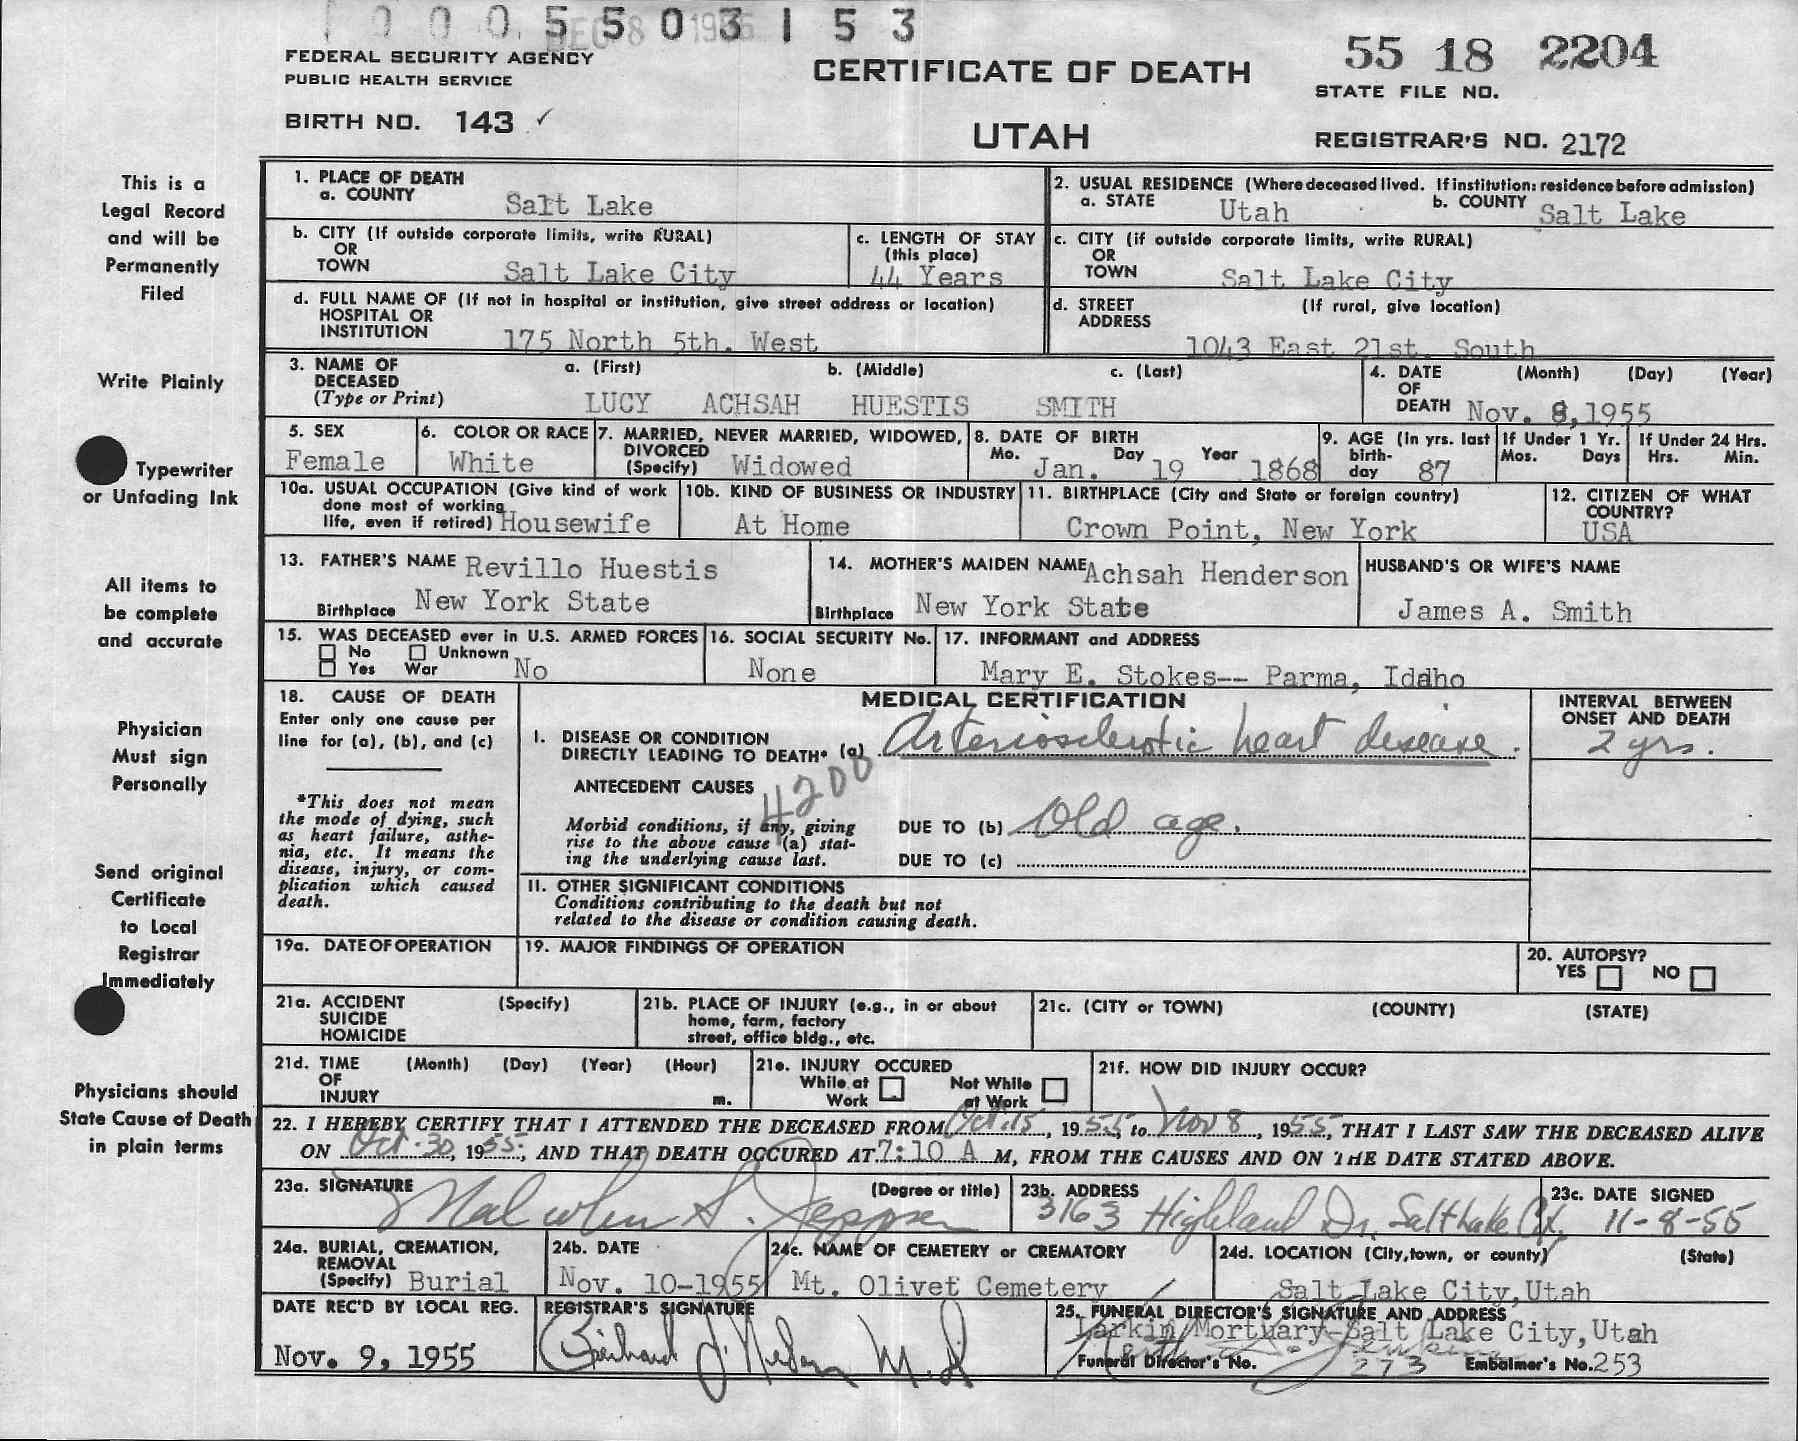 0005503153
DEC 8 1955
FEDERAL SECURITY AGENCY
PUBLIC HEALTH SERVICE
CERTIFICATE OF DEATH
55 18 2204
STATE FILE NO.
BIRTH NO. 143 ✓
UTAH
REGISTRAR'S NO. 2172
This is a
Legal Record
and will be
Permanently
Filed
Write Plainly
Typewriter
or Unfading Ink
All items to
be complete
and accurate
Physician
Must sign
Personally
Send original
Certificate
to Local
Registrar
Immediately
Physicians should
State Cause of Death
in plain terms
1. PLACE OF DEATH
a. COUNTY Salt Lake
2. USUAL RESIDENCE (Where deceased lived. If institution: residence before admission)
a. STATE Utah b. COUNTY Salt Lake
b. CITY (If outside corporate limits, write RURAL)
OR
TOWN Salt Lake City
c. LENGTH OF STAY
(this place)
44 Years
c. CITY (if outside corporate limits, write RURAL)
OR
TOWN Salt Lake City
d. FULL NAME OF (If not in hospital or institution, give street address or location)
HOSPITAL OR
INSTITUTION 175 North 5th. West
d. STREET (If rural, give location)
ADDRESS 1043 East 21st. South
3. NAME OF a. (First) b. (Middle) c. (Last)
DECEASED
(Type or Print) LUCY ACHSAH HUESTIS SMITH
4. DATE (Month) (Day) (Year)
OF
DEATH Nov. 8,1955
5. SEX
Female
6. COLOR OR RACE
White
7. MARRIED, NEVER MARRIED, WIDOWED,
DIVORCED
(Specify) Widowed
8. DATE OF BIRTH
Mo. Day Year
Jan. 19 1868
9. AGE (In yrs. last
birth-
day 87
If Under 1 Yr.
Mos. Days
If Under 24 Hrs.
Hrs. Min.
10a. USUAL OCCUPATION (Give kind of work
done most of working
life, even if retired) Housewife
10b. KIND OF BUSINESS OR INDUSTRY
At Home
11. BIRTHPLACE (City and State or foreign country)
Crown Point, New York
12. CITIZEN OF WHAT
COUNTRY?
USA
13. FATHER'S NAME Revillo Huestis
Birthplace New York State
14. MOTHER'S MAIDEN NAME Achsah Henderson
Birthplace New York State
HUSBAND'S OR WIFE'S NAME
James A. Smith
15. WAS DECEASED ever in U.S. ARMED FORCES
No Unknown
Yes War No
16. SOCIAL SECURITY No.
None
17. INFORMANT and ADDRESS
Mary E. Stokes-- Parma, Idaho
18. CAUSE OF DEATH
Enter only one cause per
line for (a), (b), and (c)
*This does not mean
the mode of dying, such
as heart failure, asthe-
nia, etc. It means the
disease, injury, or com-
plication which caused
death.
MEDICAL CERTIFICATION
INTERVAL BETWEEN
ONSET AND DEATH
I. DISEASE OR CONDITION
DIRECTLY LEADING TO DEATH* (a) Arteriosclerotic heart disease. 2 yrs.
ANTECEDENT CAUSES
4200
Morbid conditions, if any, giving
rise to the above cause (a) stat-
ing the underlying cause last.
DUE TO (b) Old age.
DUE TO (c)
II. OTHER SIGNIFICANT CONDITIONS
Conditions contributing to the death but not
related to the disease or condition causing death.
19a. DATE OF OPERATION
19. MAJOR FINDINGS OF OPERATION
20. AUTOPSY?
YES NO
21a. ACCIDENT (Specify)
SUICIDE
HOMICIDE
21b. PLACE OF INJURY (e.g., in or about
home, farm, factory
street, office bldg., etc.
21c. (CITY or TOWN) (COUNTY) (STATE)
21d. TIME (Month) (Day) (Year) (Hour)
OF
INJURY m.
21e. INJURY OCCURED
While at Not While
Work at Work
21f. HOW DID INJURY OCCUR?
22. I HEREBY CERTIFY THAT I ATTENDED THE DECEASED FROM Oct. 15, 1955, to Nov 8, 1955, THAT I LAST SAW THE DECEASED ALIVE
ON Oct-30, 1955, AND THAT DEATH OCCURED AT 7:10 A M, FROM THE CAUSES AND ON THE DATE STATED ABOVE.
23a. SIGNATURE (Degree or title)
Malcolm S. Jeppsen
23b. ADDRESS
3163 Highland Dr. Salt Lake City.
23c. DATE SIGNED
11-8-55
24a. BURIAL, CREMATION,
REMOVAL
(Specify) Burial
24b. DATE
Nov. 10-1955
24c. NAME OF CEMETERY or CREMATORY
Mt. Olivet Cemetery
24d. LOCATION (City, town, or county) (State)
Salt Lake City, Utah
DATE REC'D BY LOCAL REG.
Nov. 9, 1955
REGISTRAR'S SIGNATURE
M.D.
25. FUNERAL DIRECTOR'S SIGNATURE AND ADDRESS
Larkin Mortuary-Salt Lake City, Utah
Funeral Director's No. 273 Embalmer's No. 253